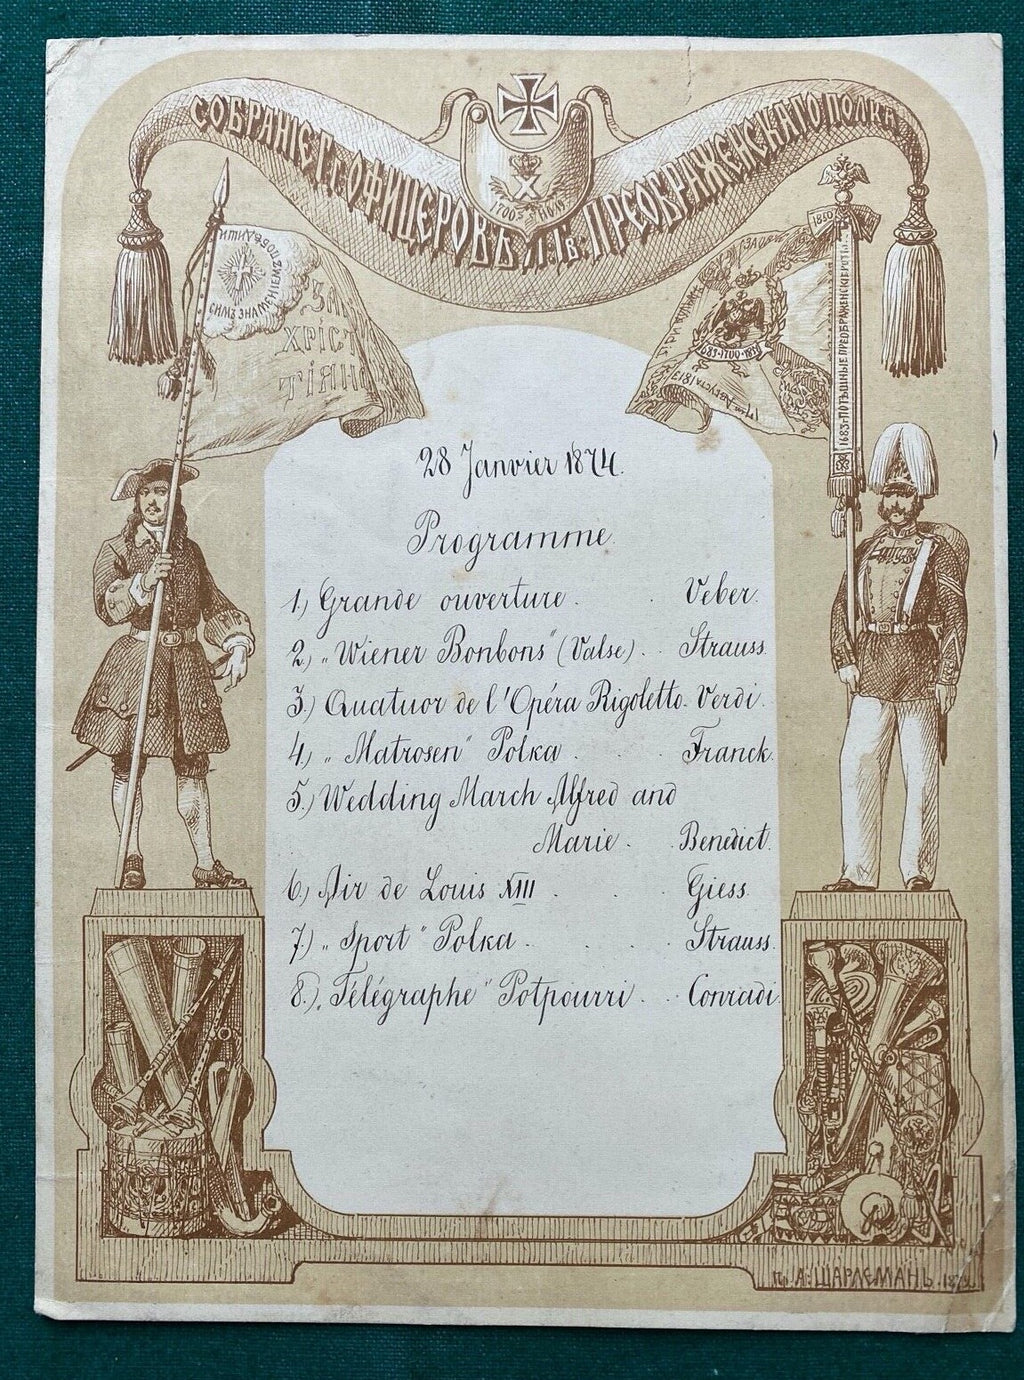 СОБРАНІЕ Г.г. ОФИЦЕРОВЪ Л. Гв. ПРЕОБРАЖЕНСКАГО ПОЛКА
1700
НОЯ
СИМЪ ЗНАМЕНІЕМЪ ПОБѢДИШИ
ЗА
ХРІСТ
ТІЯН
1850
1683·1700·1850
1683·ПОТѢШНЫЕ ПРЕОБРАЖЕНСКІЕ
АВГУСТА 1813
28 Janvier 1874.
Programme
1.) Grande ouverture. . Veber.
2.) „Wiener Bonbons" (Valse). . Strauss.
3.) Quatuor de l'Opéra Rigoletto. Verdi.
4.) „Matrosen" Polka . . . Franck.
5.) Wedding March Alfred and
Marie . . Benedict.
6.) Air de Louis XIII . . . Giess.
7.) „Sport" Polka . . . . Strauss.
8.) „Télégraphe" Potpourri . . . Conradi.
А. ШАРЛЕМАНЬ. 1872.